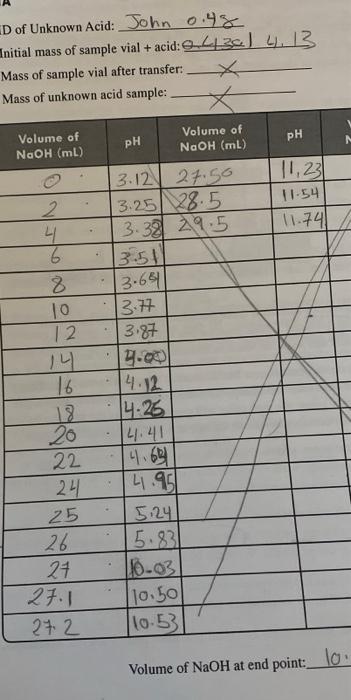 ID of Unknown Acid: John 0.48
Initial mass of sample vial + acid: 4.13
Mass of sample vial after transfer: X
Mass of unknown acid sample: X
Volume of NaOH (mL) pH Volume of NaOH (mL) pH
0 3.12 27.50 11.23
2 3.25 28.5 11.54
4 3.38 29.5 11.74
6 3.51
8 3.64
10 3.77
12 3.87
14 4.00
16 4.12
18 4.26
20 4.41
22 4.64
24 4.95
25 5.24
26 5.83
27 10.03
27.1 10.50
27.2 10.53
Volume of NaOH at end point: 10.